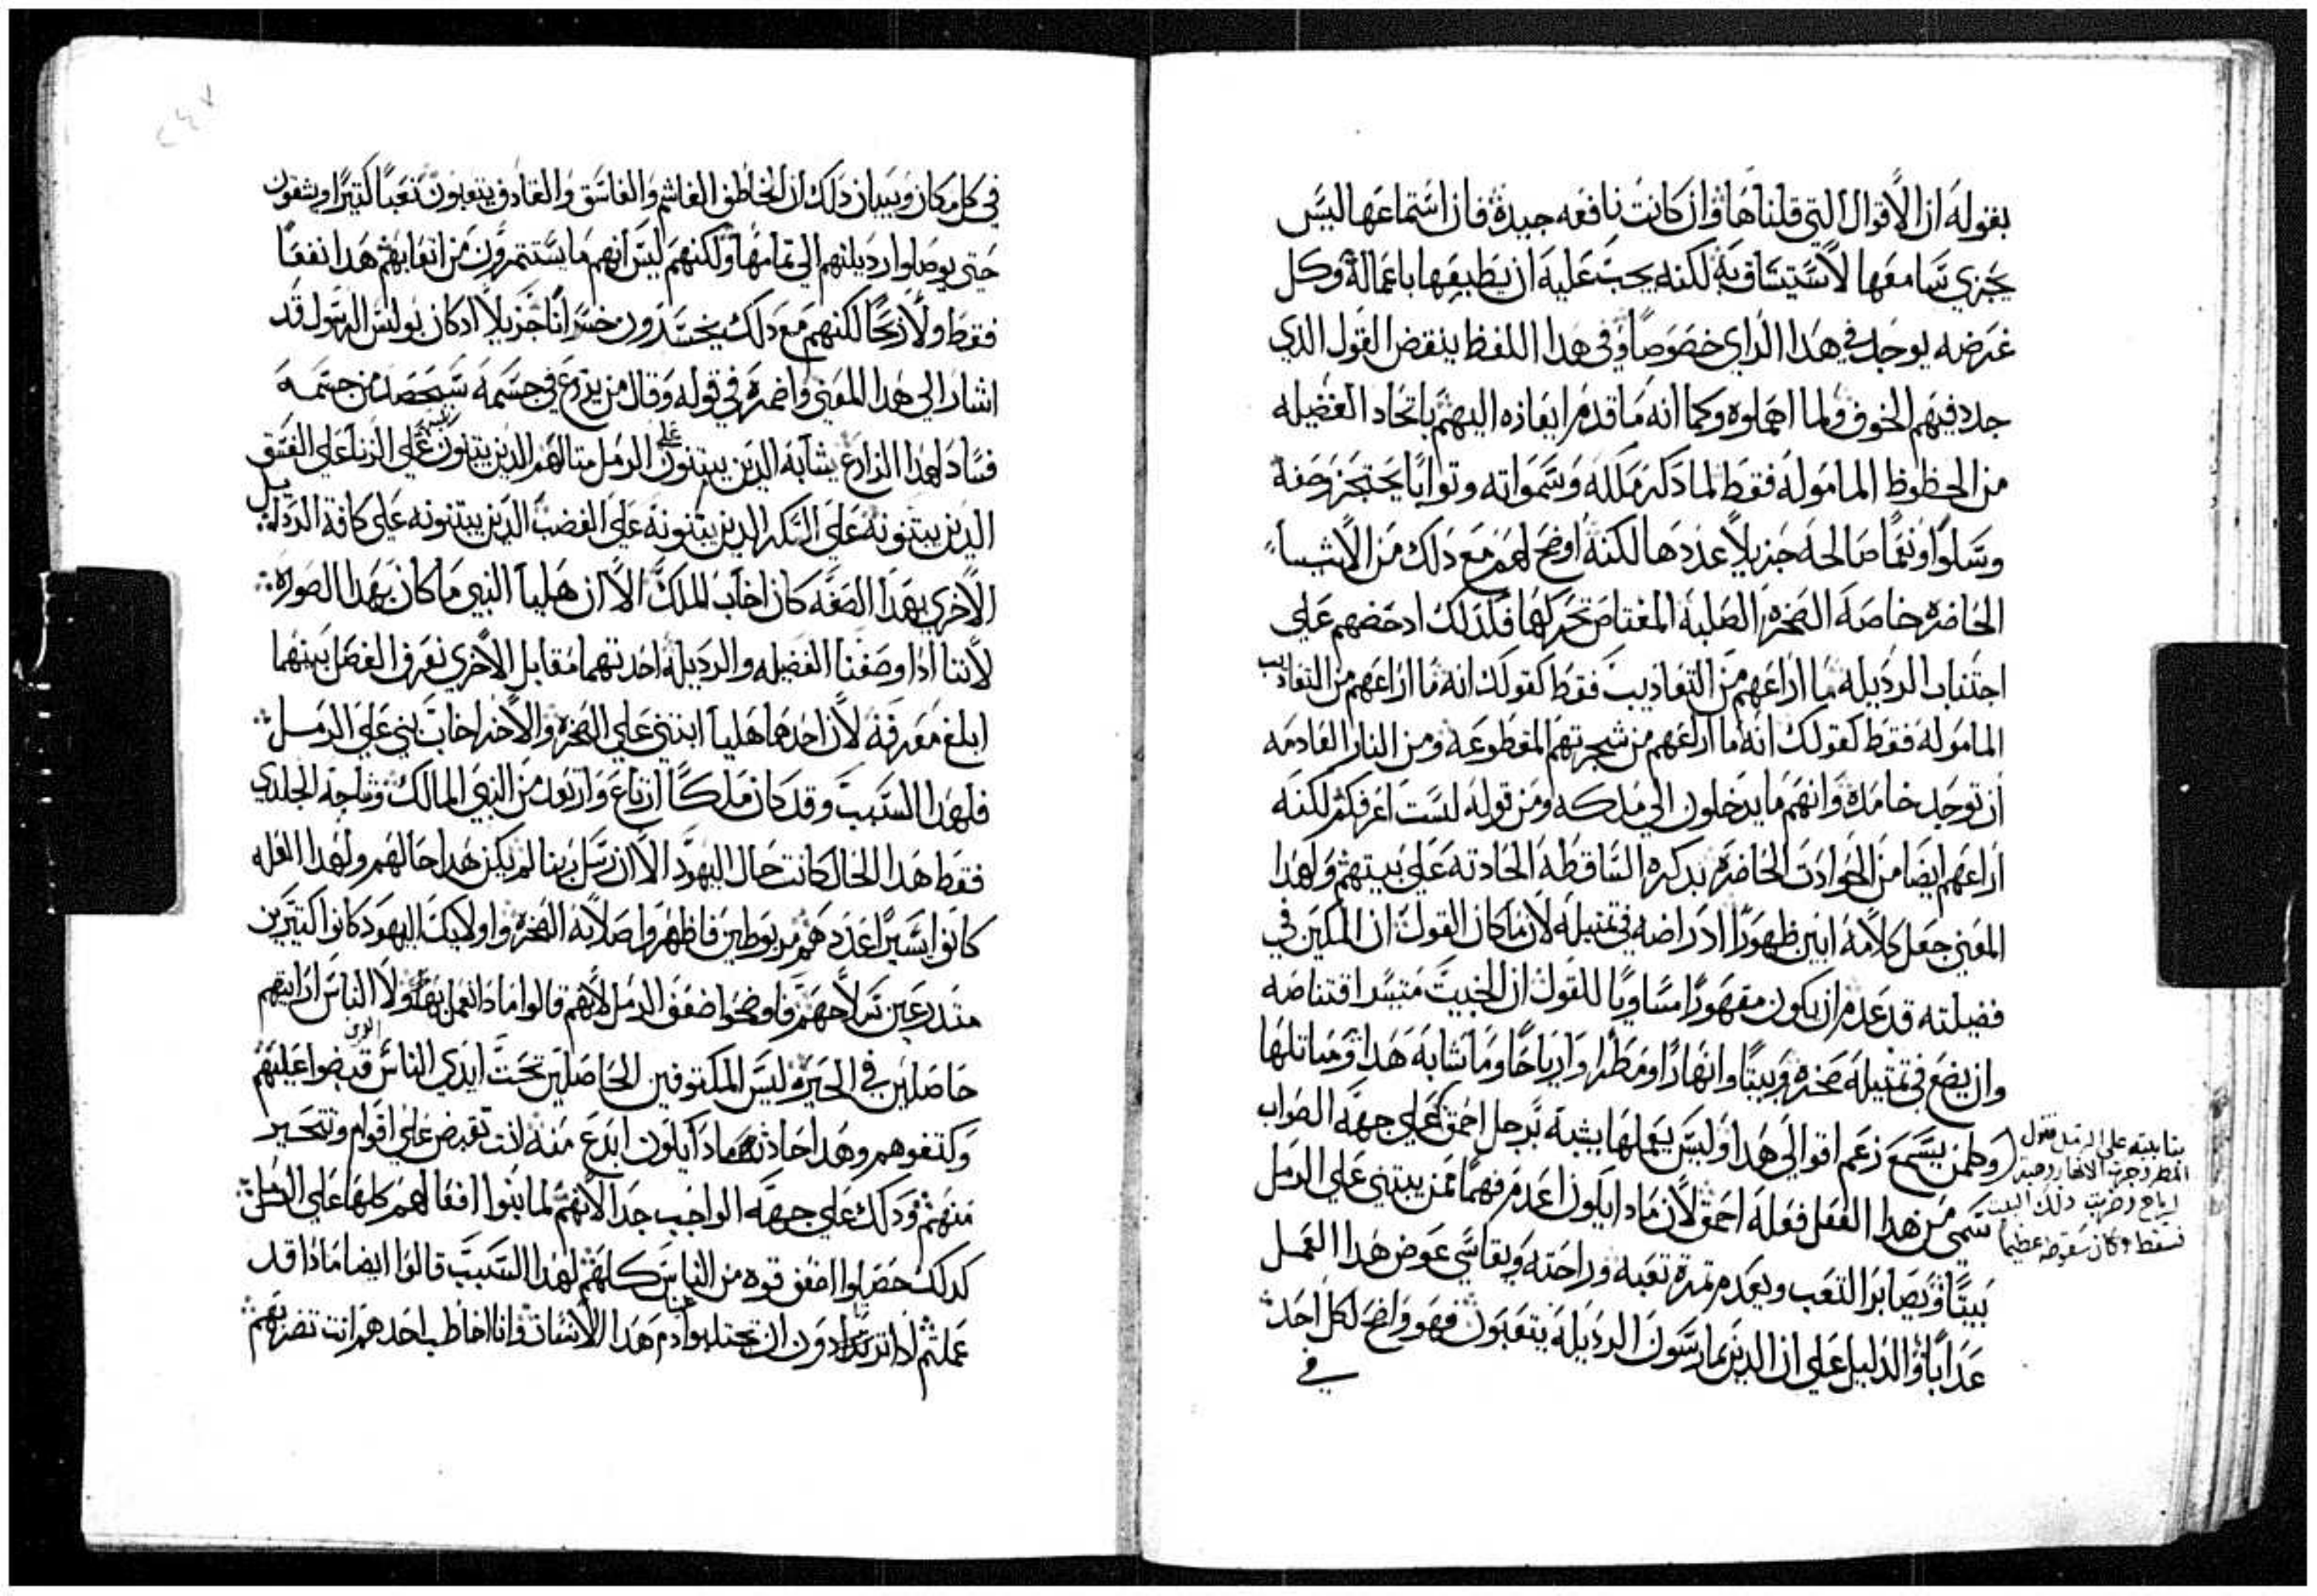 بقوله ان الاقوال التي قلناها وان كانت نافعه جيدة فان استماعها ليس
يجزي سامعها لاستيتساق به لكنه يجب عليه ان يطبيقها باعماله وكل
غرضه يوجد في هدا الراي خصوصا وفي هدا اللفظ ينقض القول الدي
جدد فيهم الخوف ولما اهملوه وكما انه ما قدم ايعازه اليهم باتحاد الفضيله
من الحظوظ المامولة فقط لما دكر مملكه وسمواته وتوابا يحتجز وصفه
وسلوا ونعما صالحه جزيلا عددها لكنه اوضح لهم مع دلك من الاشيا
الحاضره خاصة الصخره الصلبه المعتاص تحركها فكدلك ادحضهم علي
اجتناب الرديله ما اراعهم من التعاديب فقط كقولك انه ما اراعهم من التعاديب
المامولة فقط كقولك انه ما اراعهم من شجرتهم المقطوعه ومن النار العادمه
ان توجد خامدة وانهم ما يدخلون الي ملكه ومن قوله لست اعرفكم لكنه
اراعهم ايضا من الحوادت الحاضره بدكره الساقطة الحادته علي بيتهم ولهدا
المعني جعل كلامه ابين ظهورا اد راضه في تمتيله لان ما كان القول ان المكين في
فضيلته قد عدم ان يكون مقهورا مساويا للقول ان الخبيت متيسر اقتناصه
وان يضع في تمتيله صخره وبيتا وانهارا ومطرا وارياحا وما شابه هدا وماتلها
وكلمن يسمع زعم اقوالي هدا وليس يعملها يشبه برجل احمق علي جهة الصواب
بنا بيته علي الرمل فنزل
المطر وجرت الانهار وهبت
ارياح وضربت دلك البيت
فسقط وكان سقوطه عظيما
سمي من هدا الفعل فعله احمق لان مادا يكون اعدم فهما ممن يبتني علي الرمل
بيتا ويصابر التعب ويعدم تمرة تعبه وراحته ويقاسي عوض هدا العمل
عدابا والدليل علي ان الدين يمارسون الرديلة يتعبون فهو واضح لكل احد
في
٢٤٧
في كل مكان وبيان دلك ان الخاطف الغاشم والفاسق والقادف يتعبون تعبا كتيرا ويشقون
حتي يوصلوا رديلتهم الي تمامها ولكنهم ليس انهم ما يستتمرون من اتعابهم هدا نفعا
فقط ولا ربحا لكنهم مع دلك يخسرون خسرانا جزيلا اد كان بولس الرسول قد
اشار الي هدا المعني واضمره في قوله وقال من يزرع في جسمه سيحصد من جسمه
فسادا لهدا الزارع يشابه الدين يبتنون علي الرمل متالهم الدين يبتنون علي الزنا علي الفسق
الدين يبتنونه علي السكر الدين يبتنونه علي الغضب الدين يبتنونه علي كافة الردايل
الاخري بهدا الصفه كان اخاب الملك الا ان هليا النبي ما كان بهدا الصوره
لاننا ادا وصفنا الفضيله والرديله احدتهما مقابل الاخري نعرف الفصل بينهما
ابلغ معرفة لان احدهما هليا ابتني علي الصخره والاخر اخاب بني علي الرمل
فلهدا السبب وقد كان ملكا ارتاع وارتعد من النبي المالك وشاحه الجلدي
فقط هدا الحال كانت حال اليهود الا ان رسل ربنا لم يكن هدا حالهم ولهدا العله
كانوا يسيرا عددهم مربوطين فاظهروا صلابة الصخره واولايك اليهود كانوا كتيرين
متدرعين سلاحهم فاوضحوا ضعف الرمل لانهم قالوا مادا نعمل بهولا الناس ارايتهم
حاصلين في الحيره ليس المكتوفين الحاصلين تحت ايدي الناس قبضوا عليهم
وكتفوهم وهدا حادت مادا يكون ابدع منه انت تقبض علي اقوام وتتحير
منهم ودلك علي جهة الواجب جدا لانهم لما بنوا افعالهم كلها علي الرمل
كدلك حصلوا اضعف قوه من الناس كلهم لهدا السبب قالوا ايضا مادا قد
عملتم ادا تريدون ان تجتلبوا دم هدا الانسان وانا اخاطب احدهم انت تضربهم